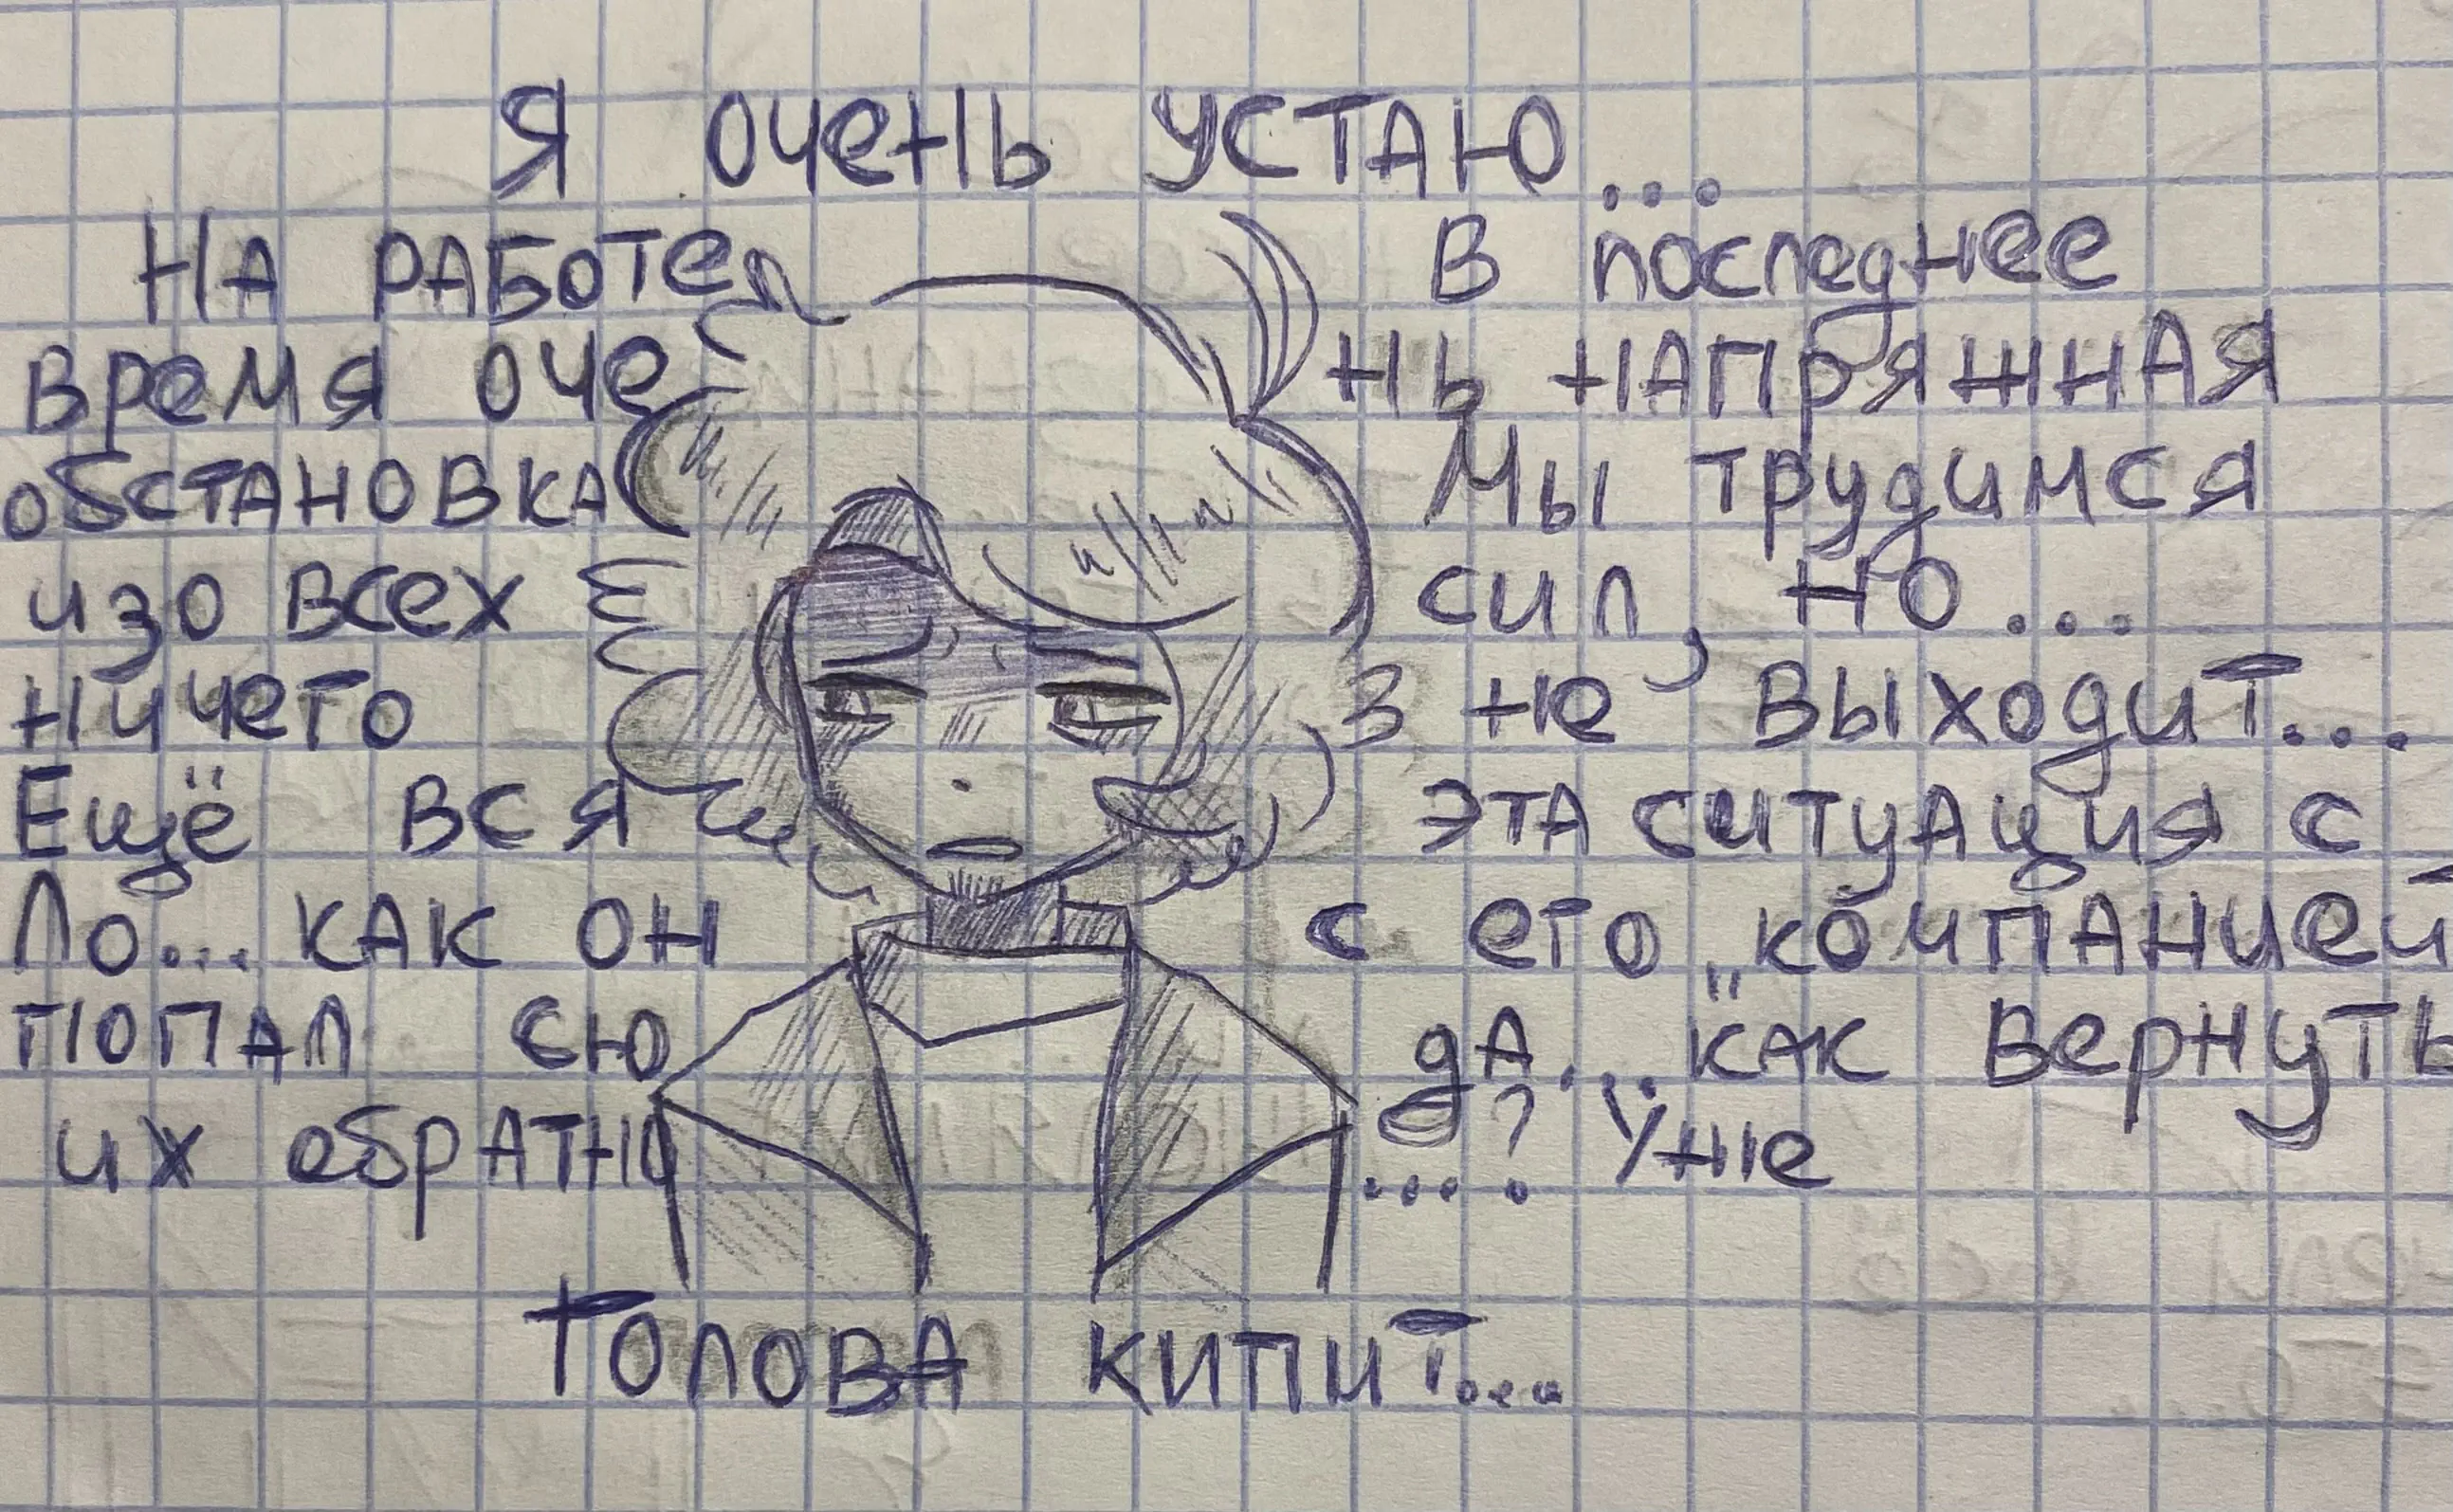 Я очень устаю...
На работе в последнее
время очень напряжная
обстановка Мы трудимся
изо всех сил, но...
ничего не выходит...
Ещё вся эта ситуация с
Ло... как он с его "компанией
попал сюда... как вернуть
их обратно....? Уже
голова кипит....